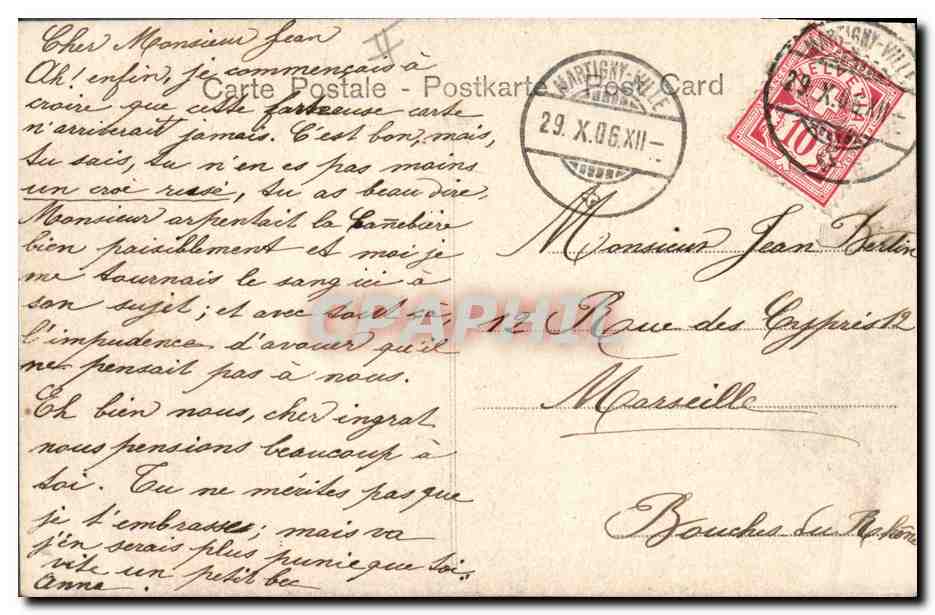 Cher Monsieur Jean
Ah! enfin, je commençais à
croire que cette fameuse carte
n'arriverait jamais. C'est bon, mais,
tu sais, tu n'en es pas moins
un croe rossé, tu as beau dire.
Monsieur arpentait la Canebière
bien paisiblement et moi je
me tournais le sang ici à
son sujet; et avec tout ça,
l'impudence d'avouer qu'il
ne pensait pas à nous.
Eh bien nous, cher ingrat
nous pensions beaucoup à
toi. Tu ne mérites pas que
je t'embrasse; mais va
j'en serais plus punie que toi
vite un petit bec
Anne.
Carte Postale - Postkarte - Post Card
MARTIGNY-VILLE
29. X. 06. XII-
MARTIGNY-VILLE
29. X. 06. XII
HELVETIA
10
Monsieur Jean Bertin
12 Rue des Cyprès 12
Marseille
Bouches du Rhône
CPAPHIL